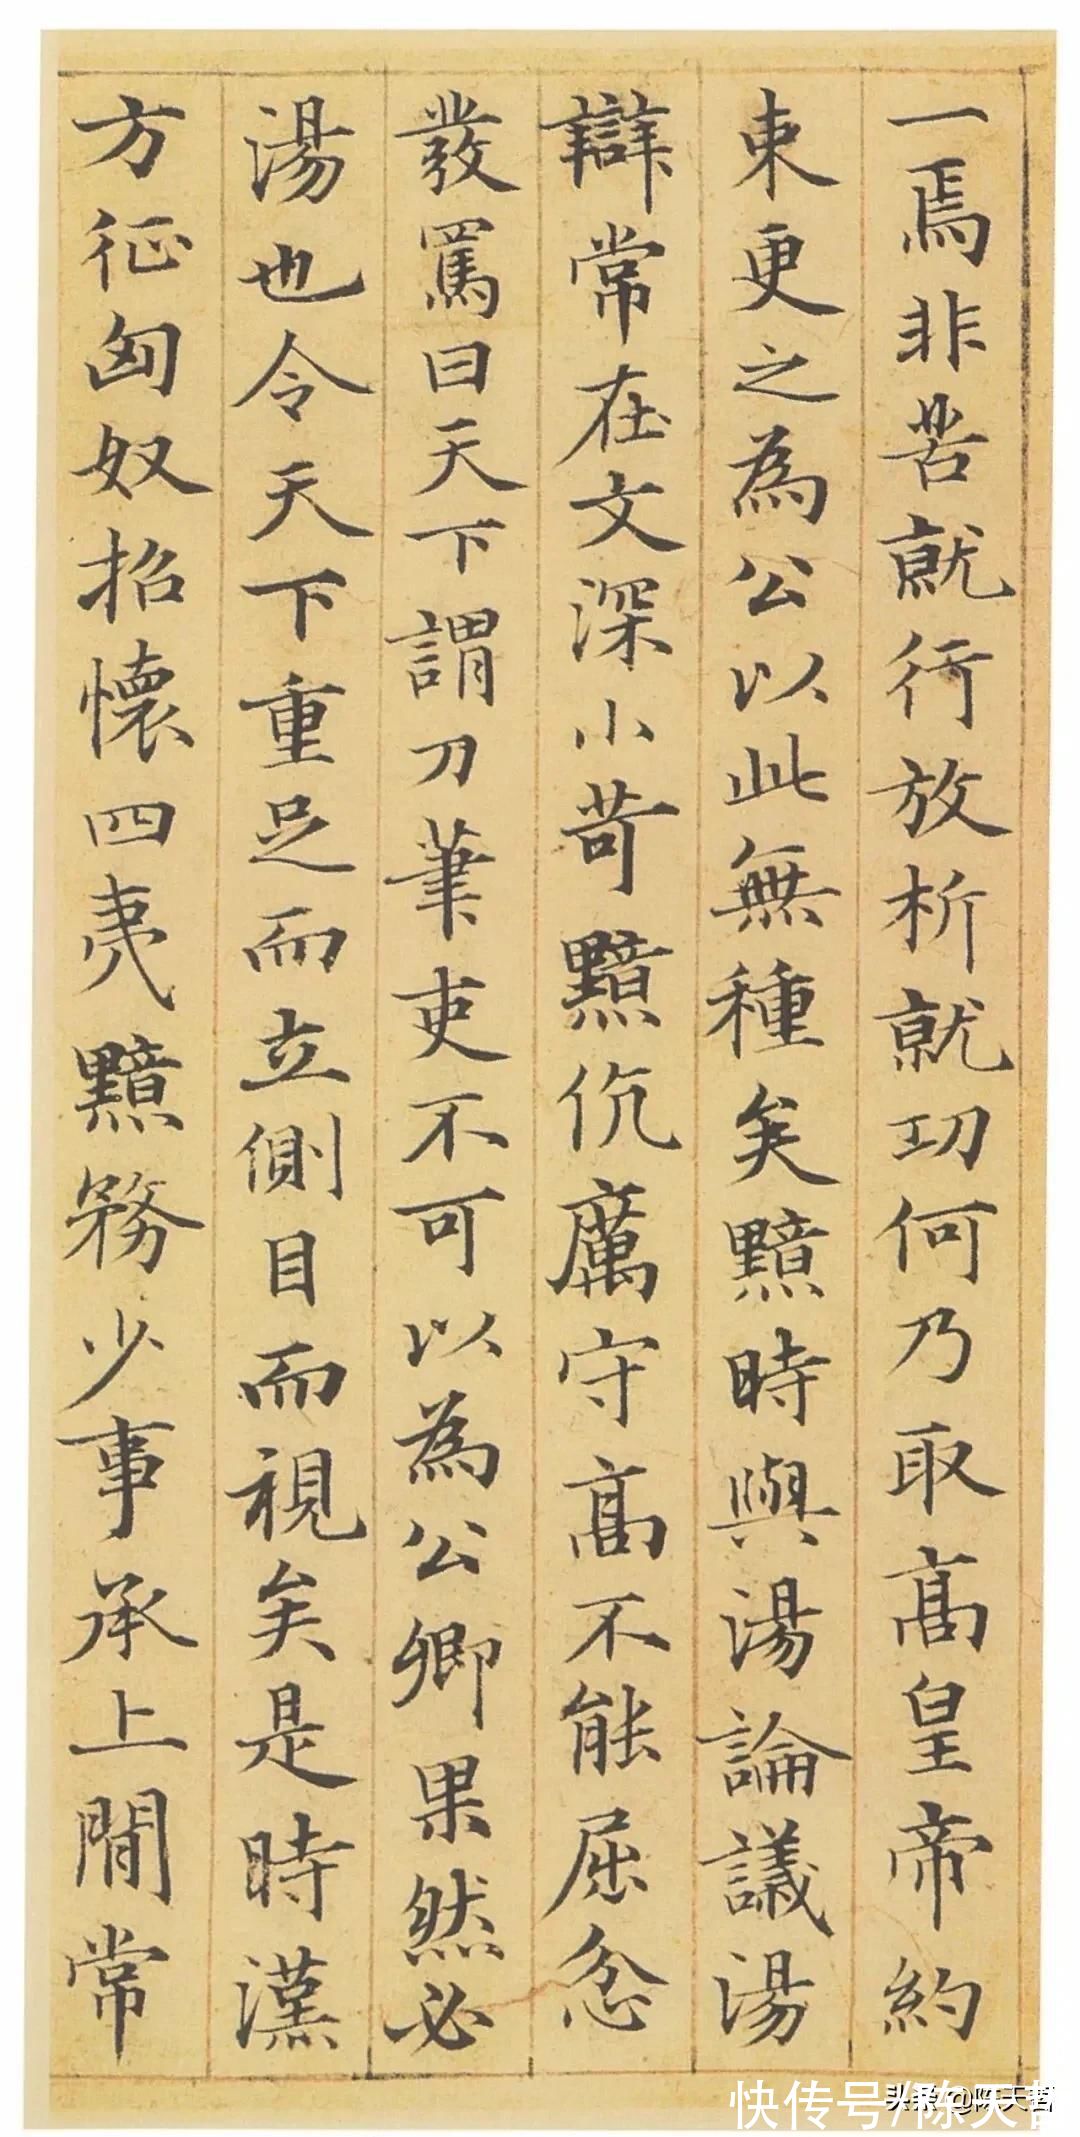 一焉非苦就行放析就功何乃取髙皇帝約
束更之為公以此無種矣黯時與湯論議湯
辯常在文深小苛黯伉厲守髙不能屈忿
發罵曰天下謂刀筆吏不可以為公卿果然必
湯也令天下重足而立側目而視矣是時漢
方征匈奴招懷四夷黯務少事承上間常
快传号/陈天哲
头条 @陈天哲